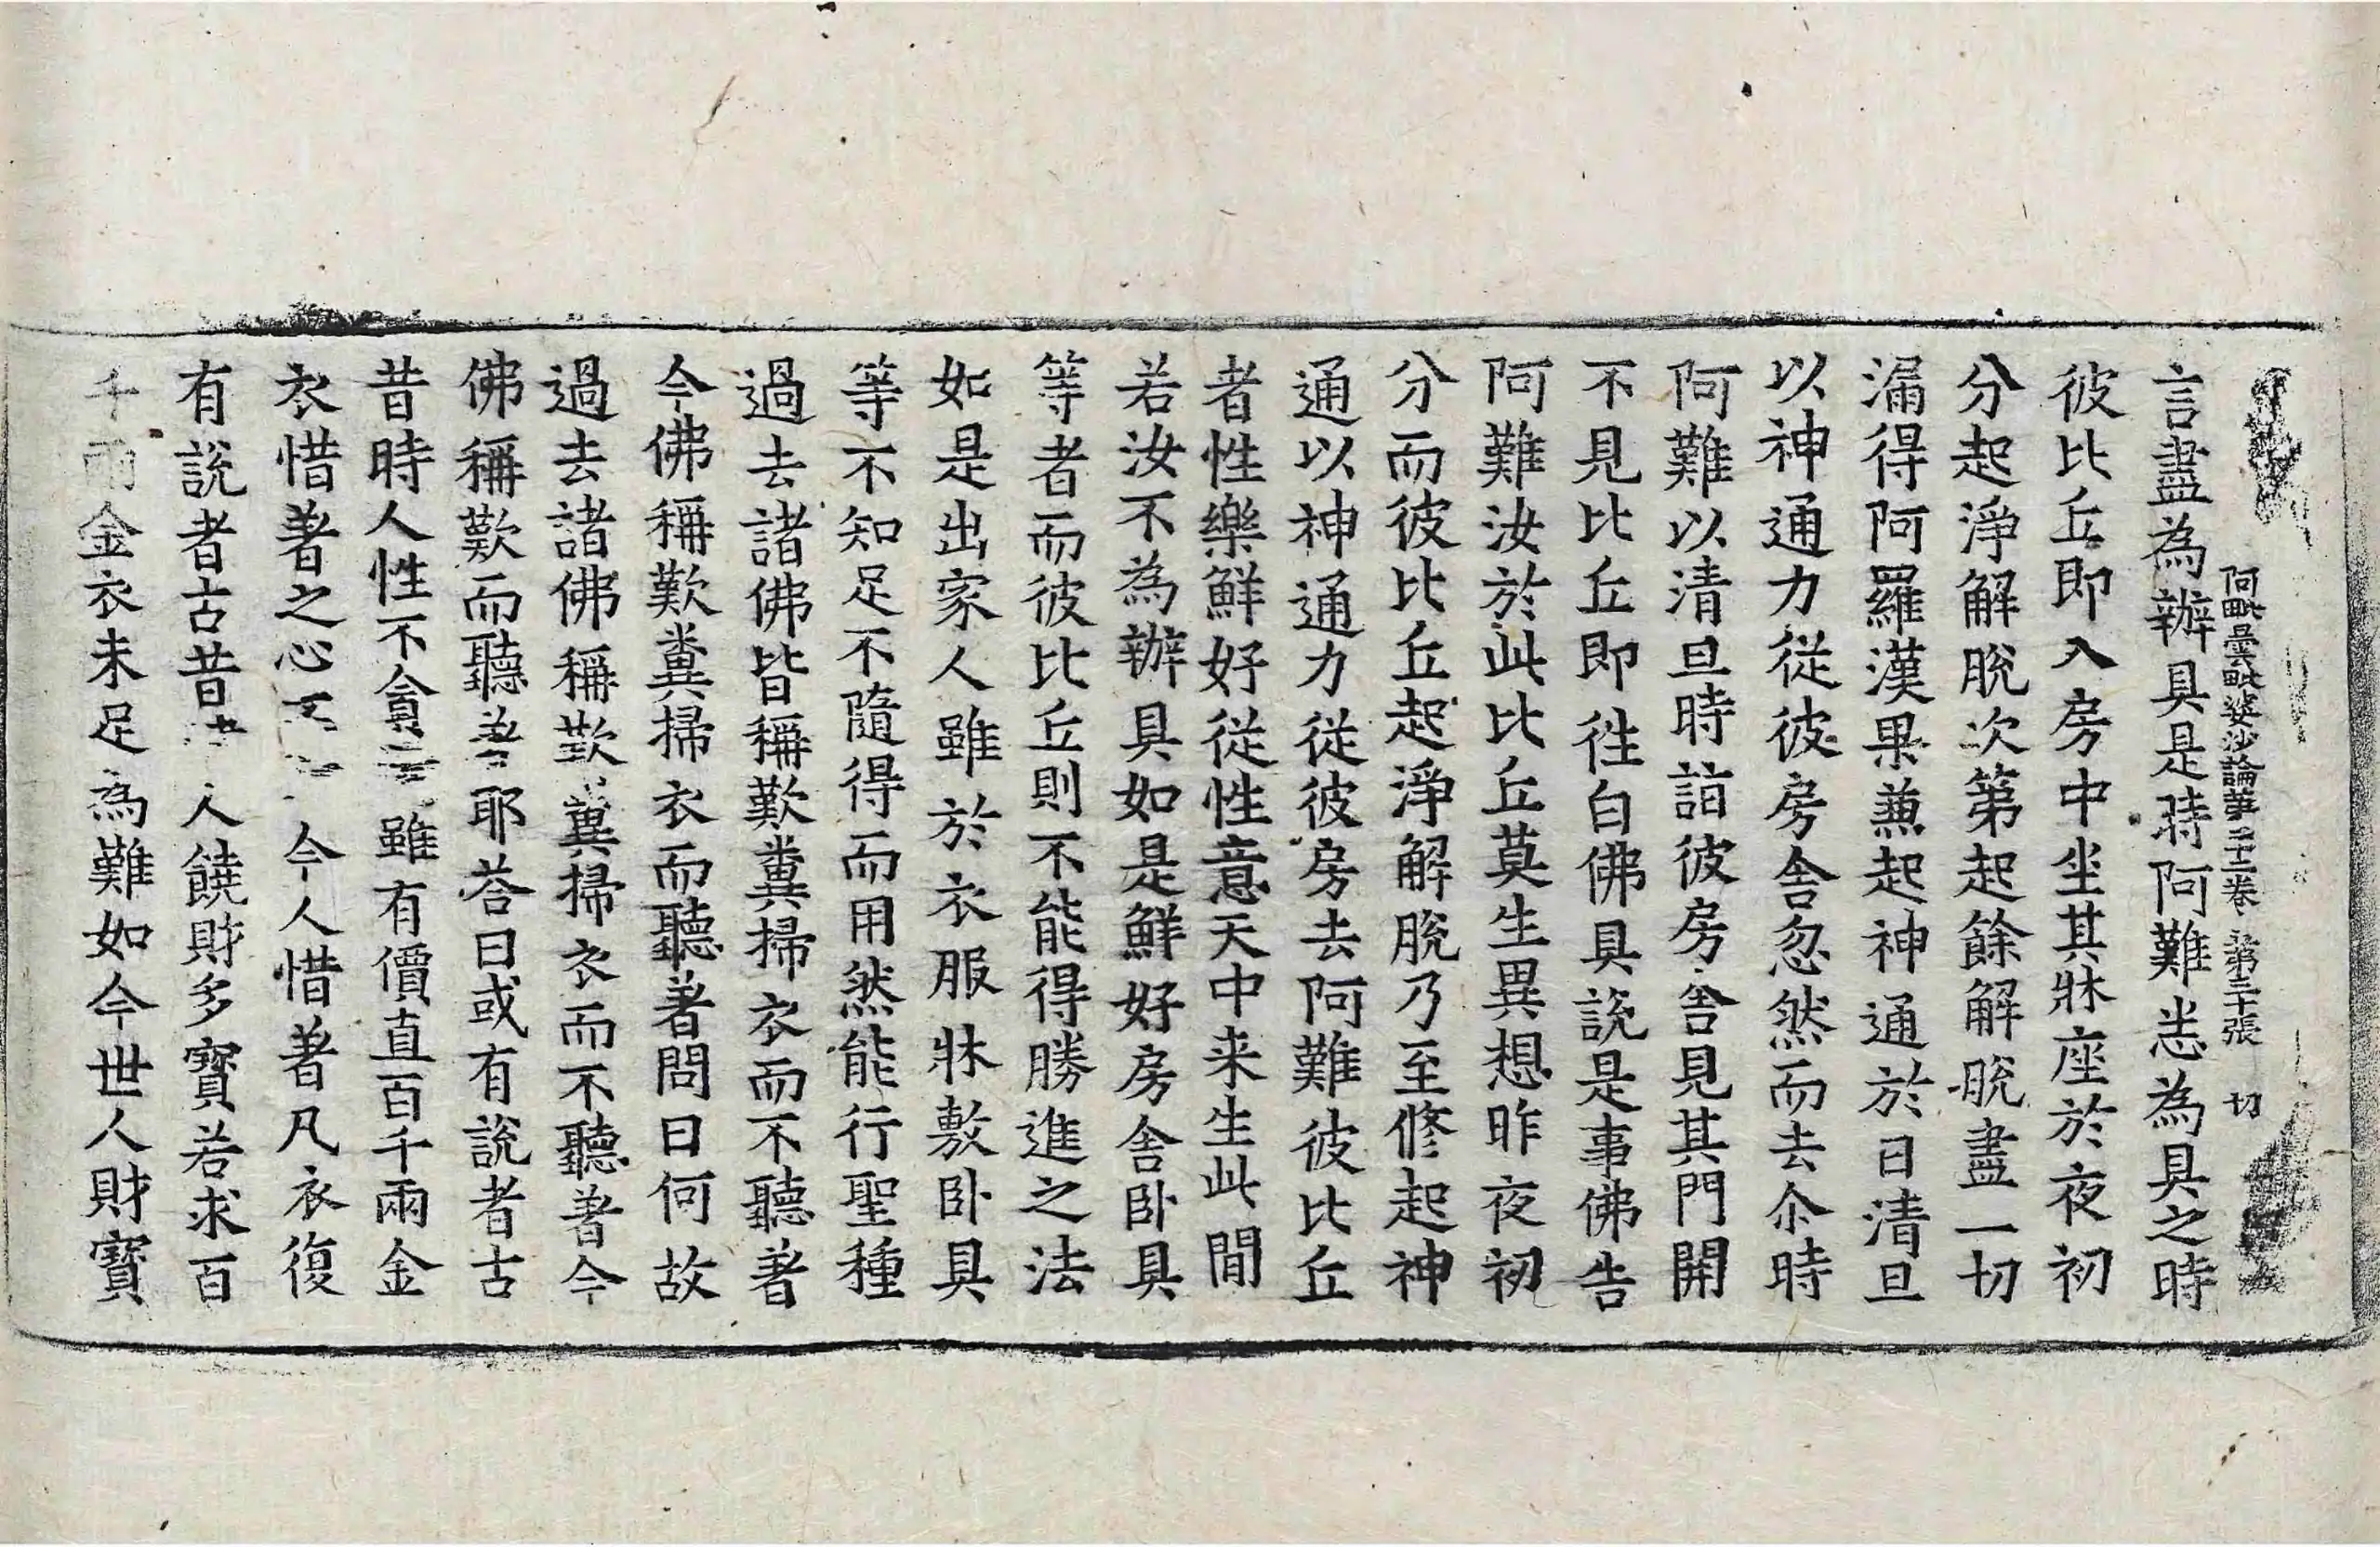 阿毗曇毗婆沙論苐三十二卷 第三十張 切
言盡為辦具是時阿難悉為具之時
彼比丘即入房中坐其牀座於夜初
分起淨解脫次第起餘解脫盡一切
漏得阿羅漢果兼起神通於日清旦
以神通力從彼房舍忽然而去尒時
阿難以清旦時詣彼房舍見其門開
不見比丘即徃白佛具說是事佛告
阿難汝於此比丘莫生異想昨夜初
分而彼比丘起淨解脫乃至修起神
通以神通力從彼房去阿難彼比丘
者性樂鮮好從性意天中来生此間
若汝不為辦具如是鮮好房舍卧具
等者而彼比丘則不能得勝進之法
如是出家人雖於衣服牀敷卧具
等不知足不隨得而用然能行聖種
過去諸佛皆稱歎糞掃衣而不聽著
今佛稱歎糞掃衣而聽著問曰何故
過去諸佛稱歎糞掃衣而不聽著今
佛稱歎而聽著耶荅曰或有說者古
昔時人性不貪雖有價直百千兩金
衣惜著之心今人惜著凡衣復
有說者古昔人饒財多寶若求百
千兩金衣未足為難如今世人財寶